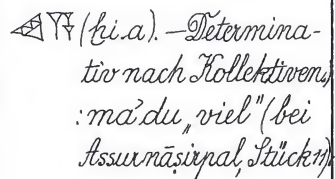 𒄭𒀀 (ḫi.a). — Determina-
tiv nach Kollektiven,
: ma'du „viel" (bei
Assurnāṣirpal, Stück 11).